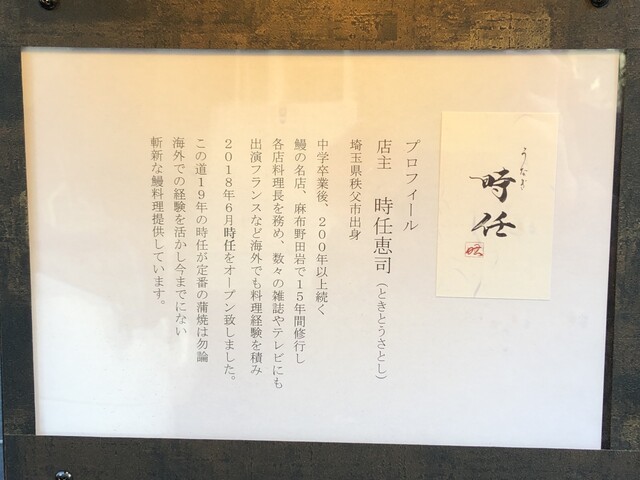 うなぎ
時任
プロフィール
店主　時任恵司（ときとうさとし）
埼玉県秩父市出身
中学卒業後、２００年以上続く
鰻の名店、麻布野田岩で１５年間修行し
各店料理長を務め、数々の雑誌やテレビにも
出演フランスなど海外でも料理経験を積み
２０１８年６月時任をオープン致しました。
この道１９年の時任が定番の蒲焼は勿論
海外での経験を活かし今までにない
斬新な鰻料理提供しています。